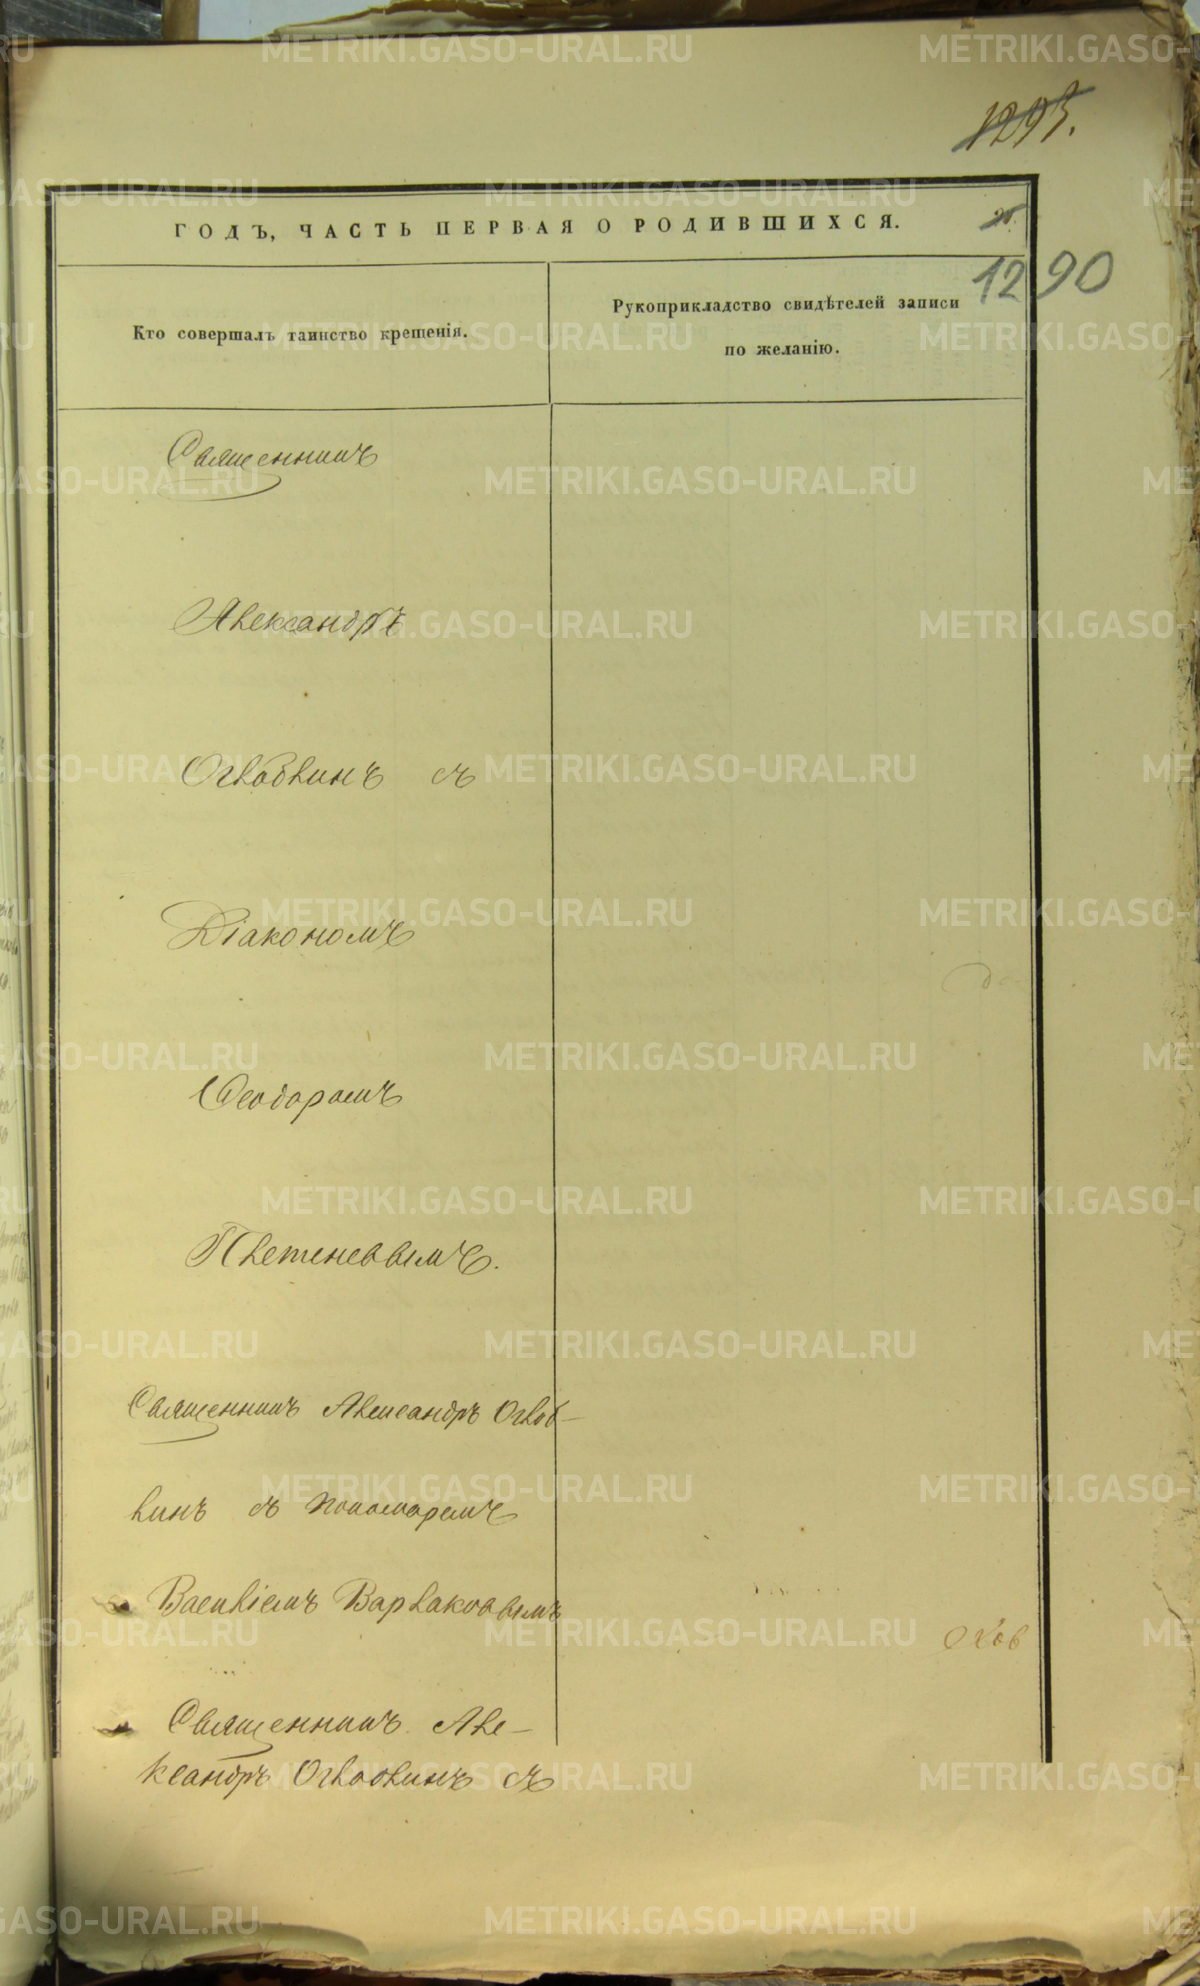 1293.
ГОДЪ, ЧАСТЬ ПЕРВАЯ О РОДИВШИХСЯ.
1290
Кто совершалъ таинство крещенія.
Рукоприкладство свидѣтелей записи
по желанію.
Священникъ
Александръ
Оглоблинъ съ
Діакономъ
Ѳеодоромъ
Плетеневымъ.
Священникъ Александръ Оглоб-
линъ съ Пономаремъ
Василіемъ Варлаковымъ
Священникъ Але-
ксандръ Оглоблинъ съ
METRIKI.GASO-URAL.RU